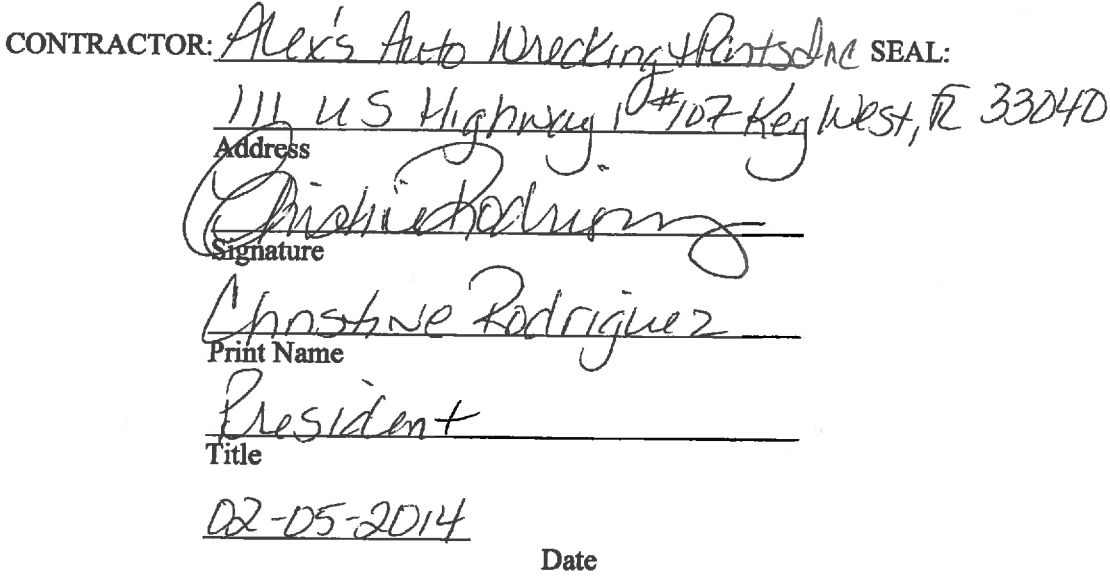 CONTRACTOR: Alex's Auto Wrecking & Parts Inc SEAL:
111 US Highway 1 #107 Key West, FL 33040
Address
Christine Rodriguez
Signature
Christine Rodriguez
Print Name
President
Title
02-05-2014
Date